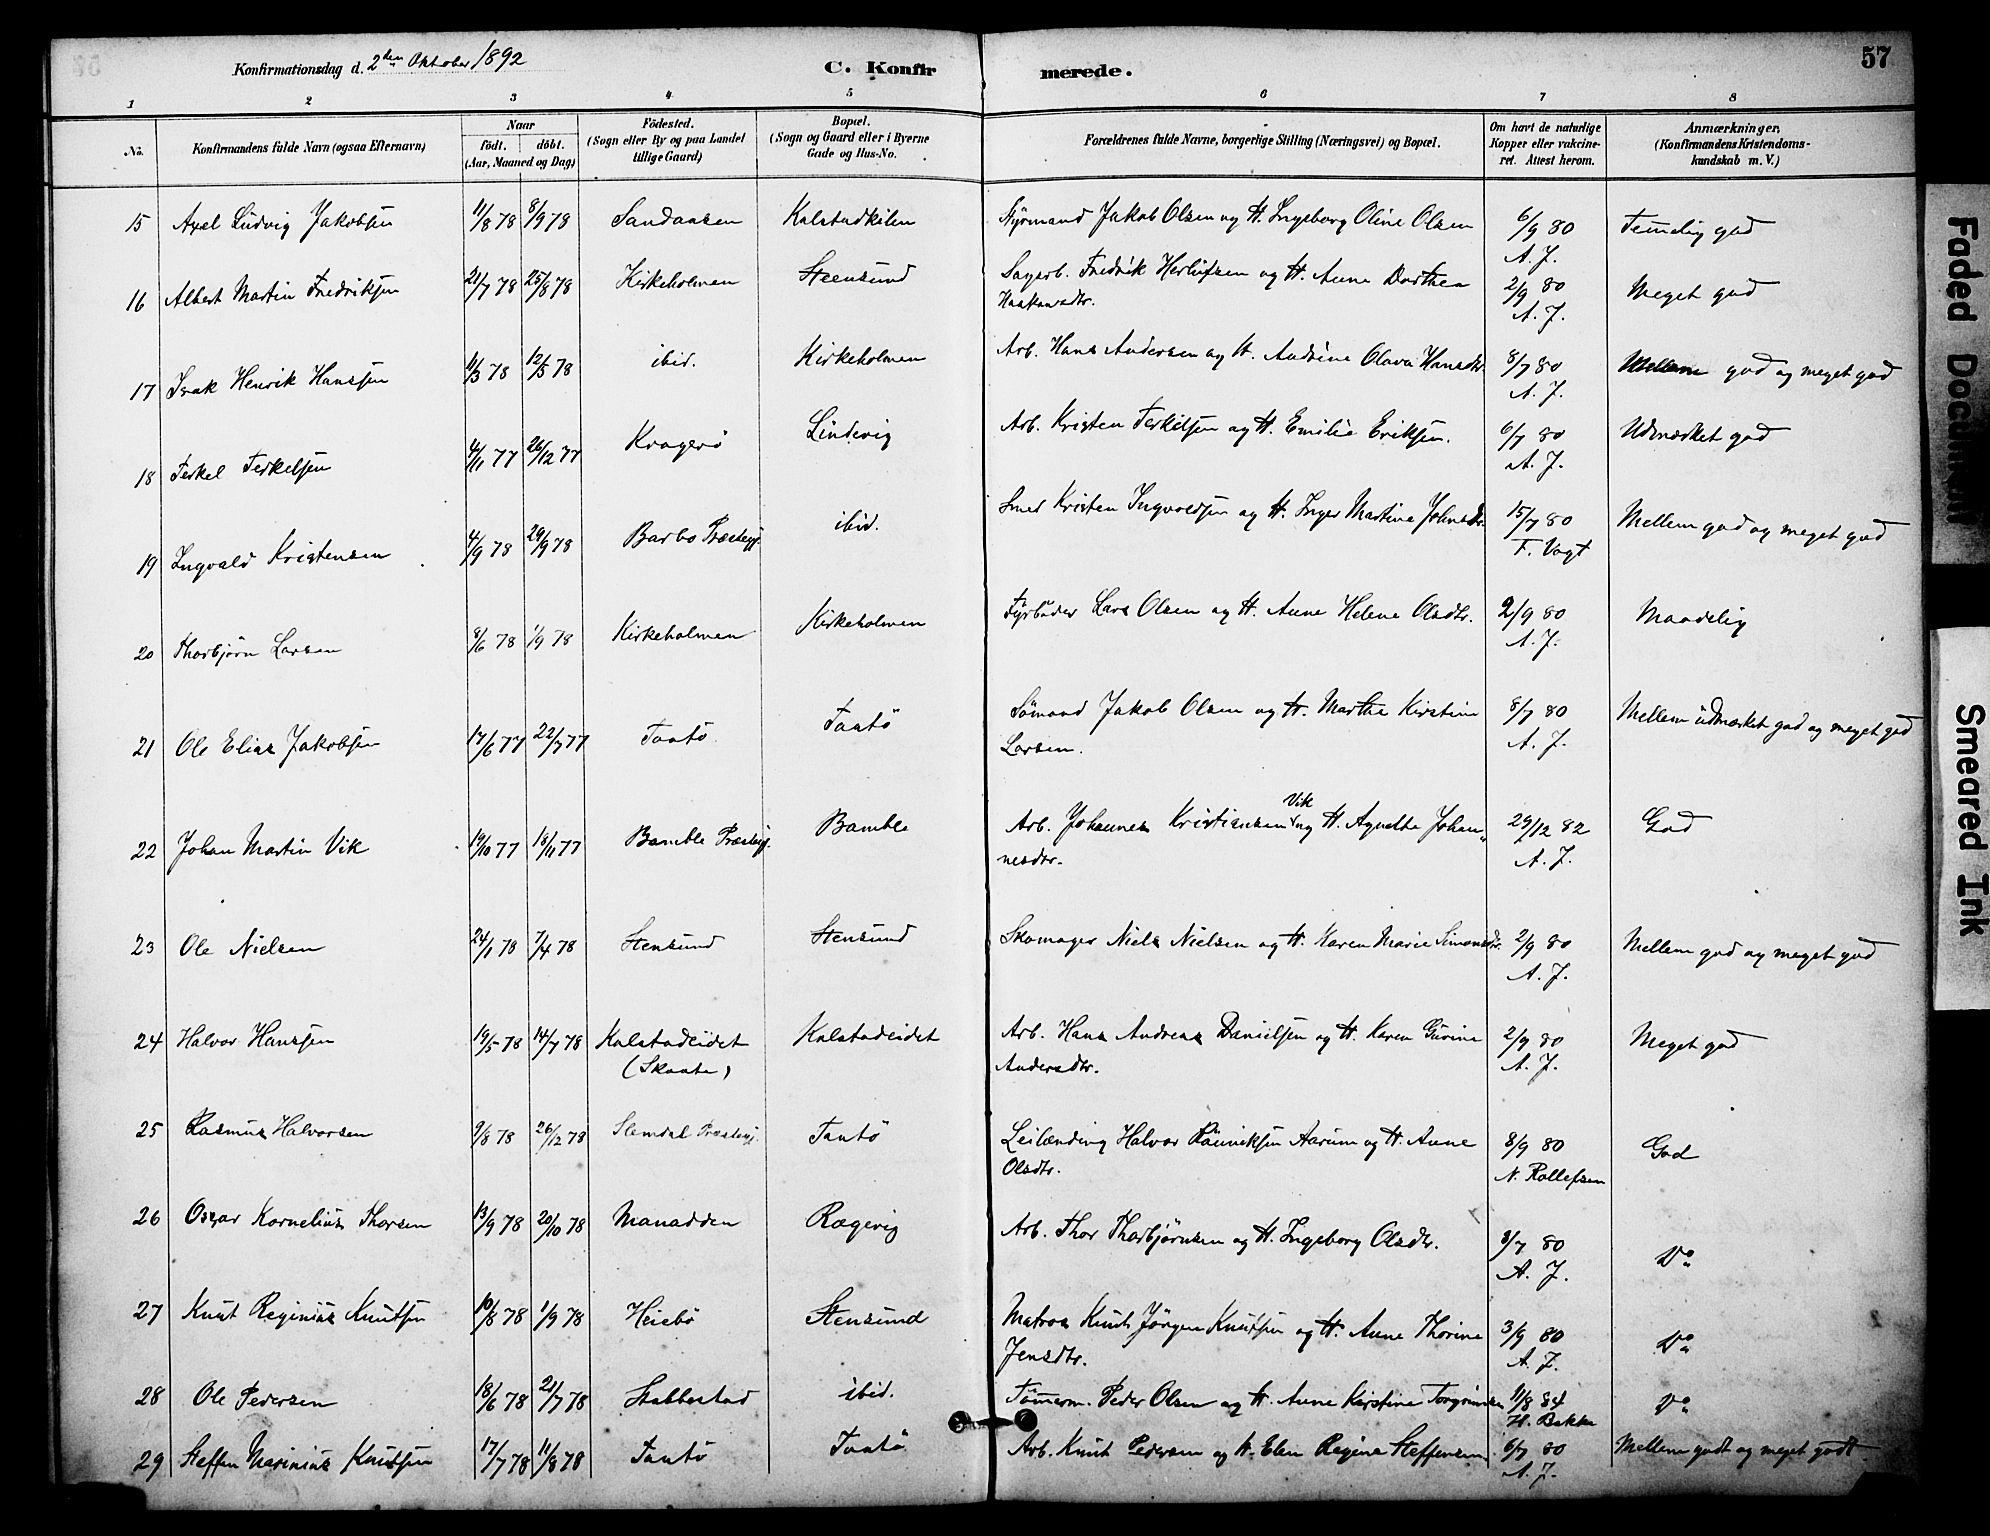 Konfirmationsdag d. 2den Oktober 1892
C. Konfirmerede.
57
1 2 3 4 5 6 7 8
No. Konfirmandens fulde Navn (ogsaa Efternavn)
Naar födt. döbt. (Aar, Maaned og Dag)
Födested. (Sogn eller By og paa Landet tillige Gaard)
Bopæl. (Sogn og Gaard eller i Byerne Gade og Hus-No.
Forældrenes fulde Navne, borgerlige Stilling (Næringsvei) og Bopæl.
Om havt de naturlige Kopper eller vakcineret. Attest herom.
Anmærkninger. (Konfirmandens Kristendomskundskab m. V.)
15 Axel Ludvig Jakobsen 11/8 78 8/9 78 Sandaasen Kalstadkilen Styrmand Jakob Olsen og H. Ingeborg Oline Olsen 6/9 80 A. J. Temelig god
16 Albert Martin Fredriksen 21/7 78 25/8 78 Kirkeholmen Steensund Sagarb. Fredrik Herlufsen og H. Anne Dorthea Haakansdtr. 2/9 80 A. J. Meget god
17 Isak Henrik Hanssen 11/3 78 12/5 78 ibid. Kirkeholmen Arb. Hans Andersen og H. Andrine Olava Hansdtr. 8/7 80 A. J. Mellem god og meget god
18 Terkel Terkelsen 4/11 77 26/12 77 Kragerö Lindvig Arb. Kristen Terkelsen og H. Emilie Eriksen. 6/7 80 A. J. Udmærket god
19 Ingvald Kristensen 4/9 78 29/9 78 Barbo Præstegj. ibid. Smed Kristen Ingvoldsen og H. Inger Martine Johnsdtr. 15/7 80 F. Vogt Mellem god og meget god
20 Thorbjörn Larsen 8/6 78 1/9 78 Kirkeholmen Kirkeholmen Fyrböder Lars Olsen og H. Anne Helene Olsdtr. 2/9 80 A. J. Maadelig
21 Ole Elias Jakobsen 17/6 77 22/7 77 Taatö Taatö Sömand Jakob Olsen og H. Marthe Kirstine Larsen. 8/7 80 A. J. Mellem udmærket god og meget god
22 Johan Martin Vik 19/10 77 18/11 77 Bamble Præstegj. Bamble Arb. Johannes Kristiansen Vik og H. Agnethe Johannesdtr. 29/12 82 A. J. God
23 Ole Nielsen 24/1 78 7/4 78 Stensund Stensund Skomager Niels Nielsen og H. Karen Marie Simonsdtr. 2/9 80 A. J. Mellem god og meget god
24 Halvor Hanssen 19/5 78 14/7 78 Kalstadeidet (Skaate) Kalstadeidet Arb. Hans Andreas Danielsen og H. Karen Gurine Andersdtr. 2/9 80 A. J. Meget god
25 Rasmus Halvorsen 9/8 78 26/12 78 Slemdal Præstegj. Taatö Leilænding Halvor Aarum og H. Anne Olsdtr. 8/9 80 N. Rollefsen God
26 Oscar Kornelius Thorsen 13/9 78 20/10 78 Manadden Rægevig Arb. Thor Thorbjörnsen og H. Ingeborg Olsdtr. 8/7 80 A. J. Do
27 Knut Reginius Knutsen 10/8 78 1/9 78 Heiebö Stensund Matros Knut Jörgen Knutsen og H. Anne Thorine Jensdtr. 3/9 80 A. J. Do
28 Ole Pedersen 18/6 78 21/7 78 Stabbestad ibid. Tömerm. Peder Olsen og H. Anne Kirstine Torgrimsen 11/8 84 H. Bakke Do
29 Steffen Marinius Knutsen 17/7 78 11/8 78 Taatö Taatö Arb. Knut Pedersen og H. Elen Regine Steffensen 6/7 80 A. J. Mellem godt og meget godt.
Faded Document
Smeared Ink